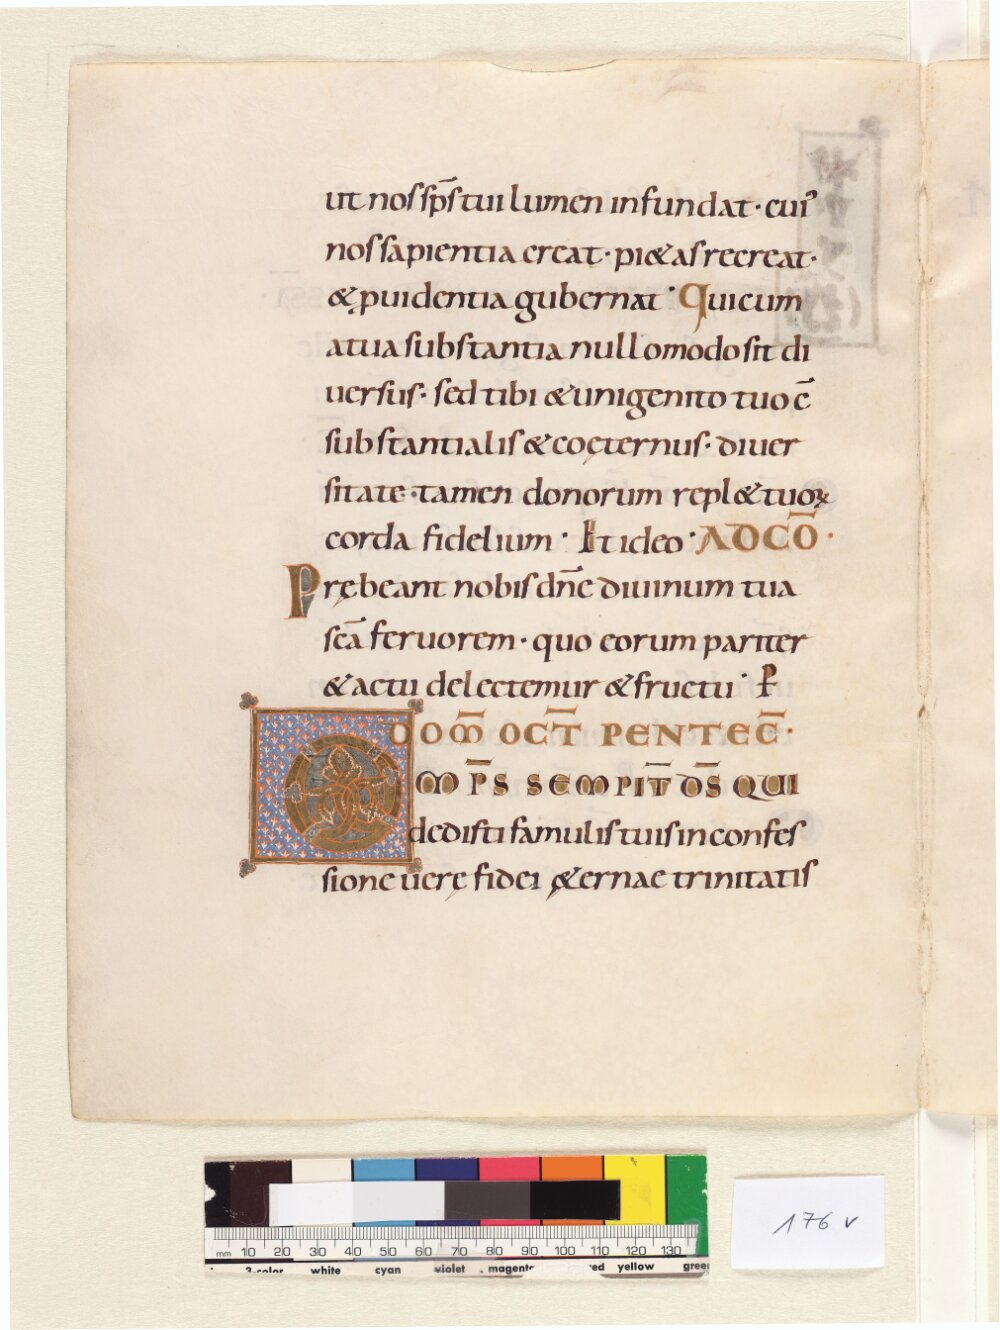 ut nos sp̄s tui lumen infundat · cui᾽
nos sapientia creat · pi&as recreat ·
& ꝓuidentia gubernat · Qui cum
a tua substantia nullomodo sit di
uersus · sed tibi & unigenito tuo c̄
substantialis & coęternus · diuer
sitate · tamen donorum repl& tuoꝝ
corda fidelium · Et ideo · AD CŌ ·
Prębeant nobis dn̄e diuinum tua
sc̄a feruorem · quo eorum pariter
& actu delectemur & fructu · P
DOM̄ OCT̄ PENTEC̄ ·
OM̄PS SEMPIT̄ DS̄ QUI
dedisti famulis tuis in confes
sione uerę fidei &ernae trinitatis
mm 10 20 30 40 50 60 70 80 90 100 110 120 130
3-color white cyan violet magenta red yellow green
176 v